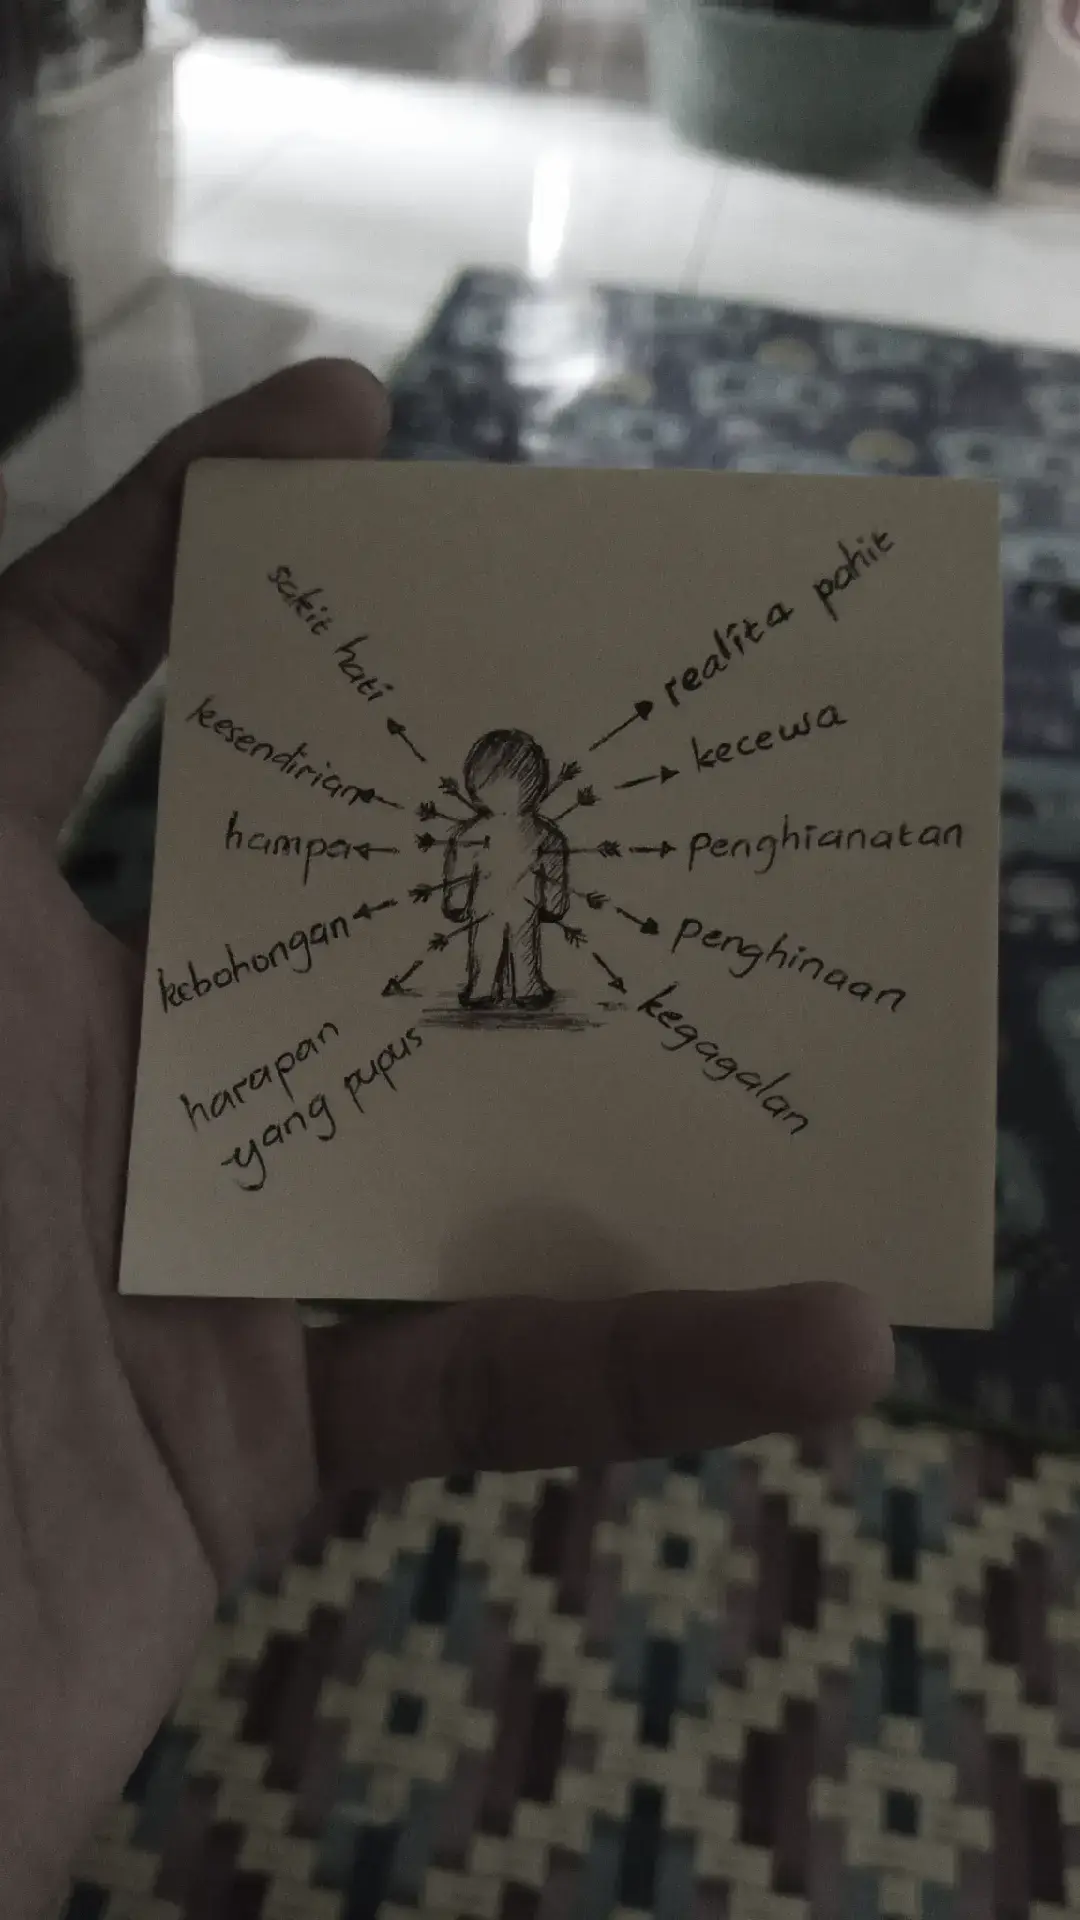 sakit hati
realita pahit
kesendirian
kecewa
hampa
penghianatan
kebohongan
penghinaan
harapan
yang pupus
kegagalan